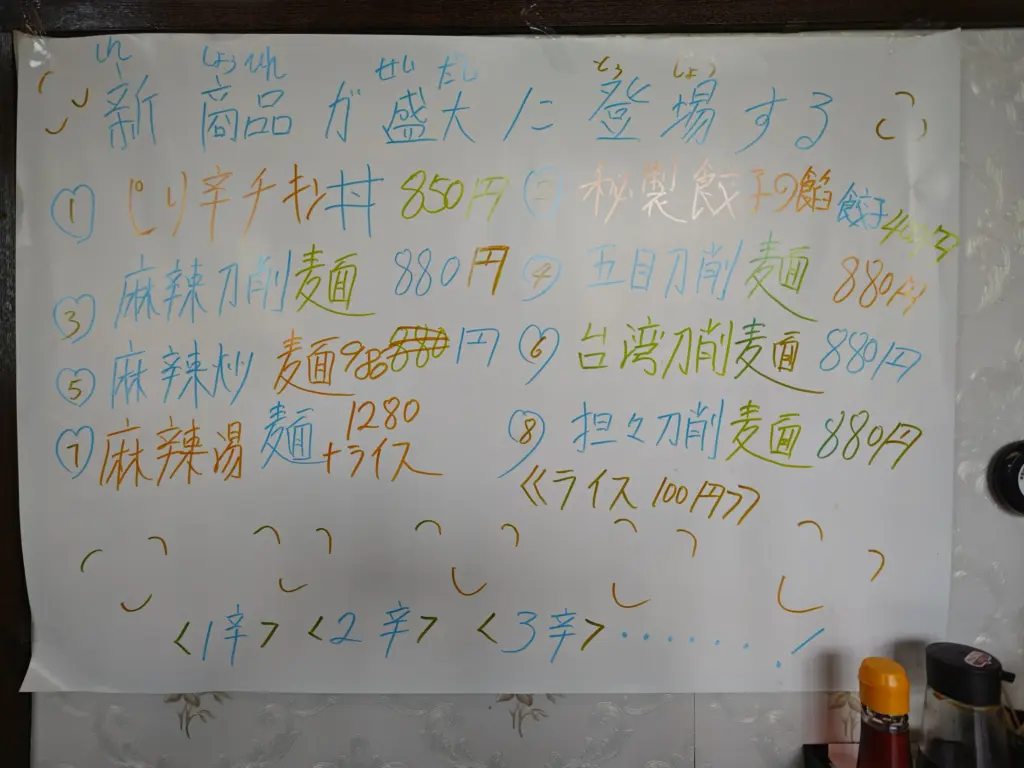 しん しょうひん せい だい とう じょう
新商品が盛大に登場する
① ピリ辛チキン丼 850円 ② 秘製餃子の餡 餃子
③ 麻辣刀削麺 880円 ④ 五目刀削麺 880円
⑤ 麻辣炒麺 980円 ⑥ 台湾刀削麺 880円
⑦ 麻辣湯麺 1280+ライス ⑧ 担々刀削麺 880円
《ライス 100円》
<1辛> <2辛> <3辛>・・・・・・・!